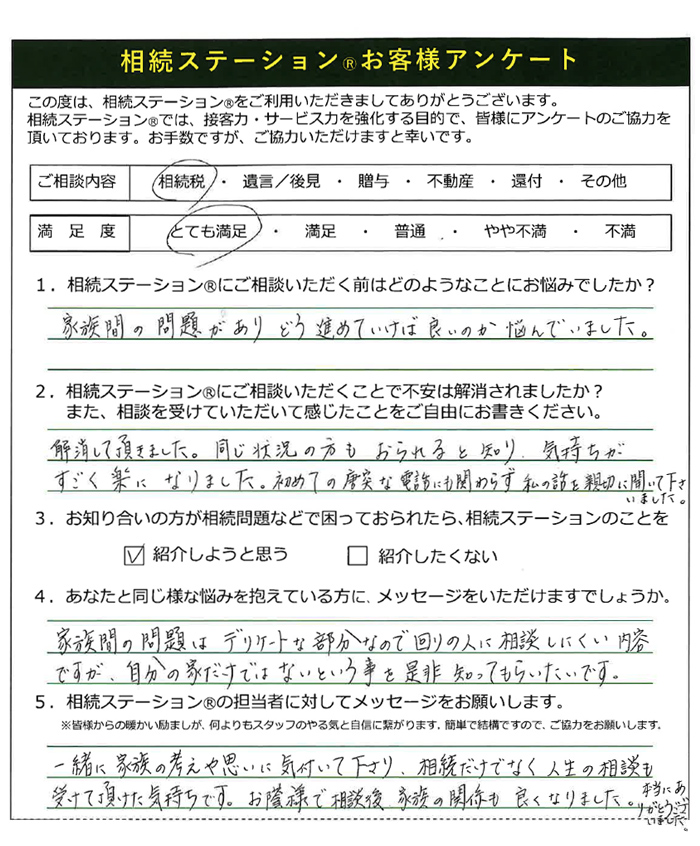 相続ステーション®お客様アンケート
この度は、相続ステーション®をご利用いただきましてありがとうございます。
相続ステーション®では、接客力・サービス力を強化する目的で、皆様にアンケートのご協力を
頂いております。お手数ですが、ご協力いただけますと幸いです。
ご相談内容 相続税 ・ 遺言／後見 ・ 贈与 ・ 不動産 ・ 還付 ・ その他
満 足 度 とても満足 ・ 満足 ・ 普通 ・ やや不満 ・ 不満
1．相続ステーション®にご相談いただく前はどのようなことにお悩みでしたか？
家族間の問題がありどう進めていけば良いのか悩んでいました。
2．相続ステーション®にご相談いただくことで不安は解消されましたか？
また、相談を受けていただいて感じたことをご自由にお書きください。
解消して頂きました。同じ状況の方もおられると知り、気持ちが
すごく楽になりました。初めての唐突な電話にも関わらず私の話を親切に聞いて下さ
いました。
3．お知り合いの方が相続問題などで困っておられたら、相続ステーションのことを
☑ 紹介しようと思う □ 紹介したくない
4．あなたと同じ様な悩みを抱えている方に、メッセージをいただけますでしょうか。
家族間の問題はデリケートな部分なので回りの人に相談しにくい内容
ですが、自分の家だけではないという事を是非知ってもらいたいです。
5．相続ステーション®の担当者に対してメッセージをお願いします。
※皆様からの暖かい励ましが、何よりもスタッフのやる気と自信に繋がります。簡単で結構ですので、ご協力をお願いします。
一緒に家族の考えや思いに気付いて下さり、相続だけでなく人生の相談も
受けて頂けた気持ちです。お陰様で相談後家族の関係も良くなりました。本当にあ
りがとうござ
いました。